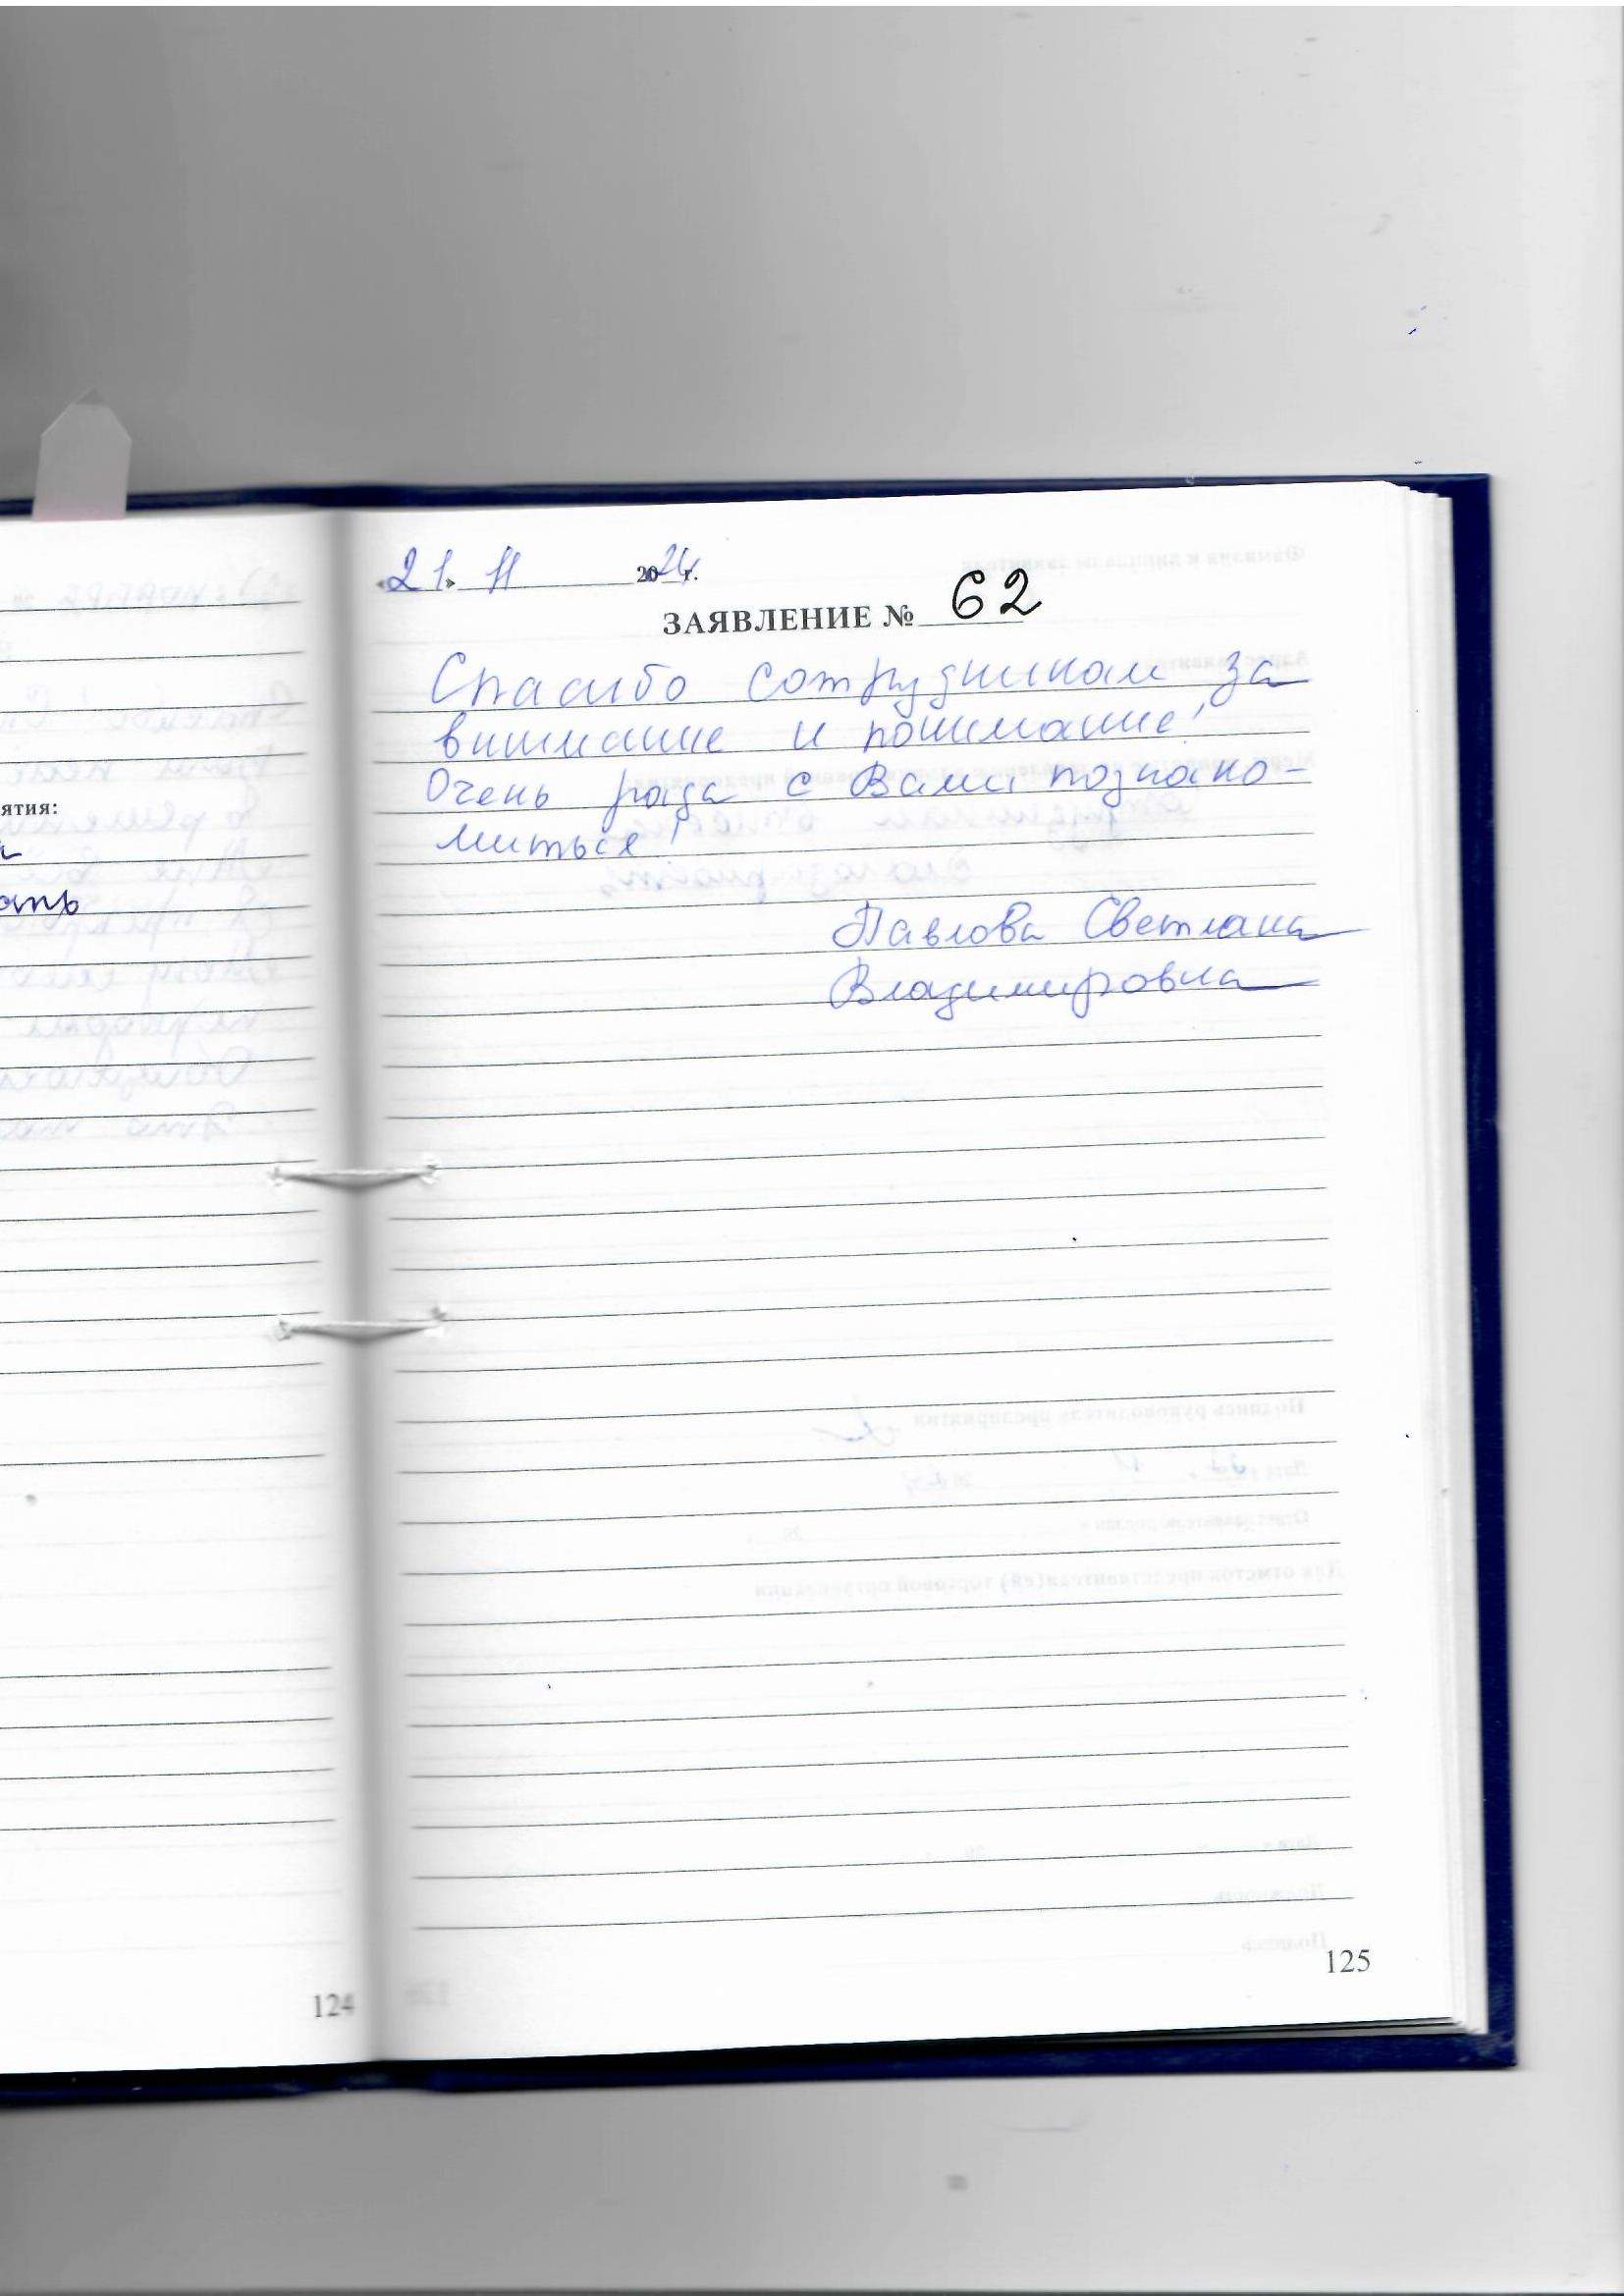 ятия:
ать
124
«21» 11 2024 г.
ЗАЯВЛЕНИЕ № 62
Спасибо сотрудникам за
внимание и понимание!
Очень рада с Вами познако-
миться!
Павлова Светлана
Владимировна
125